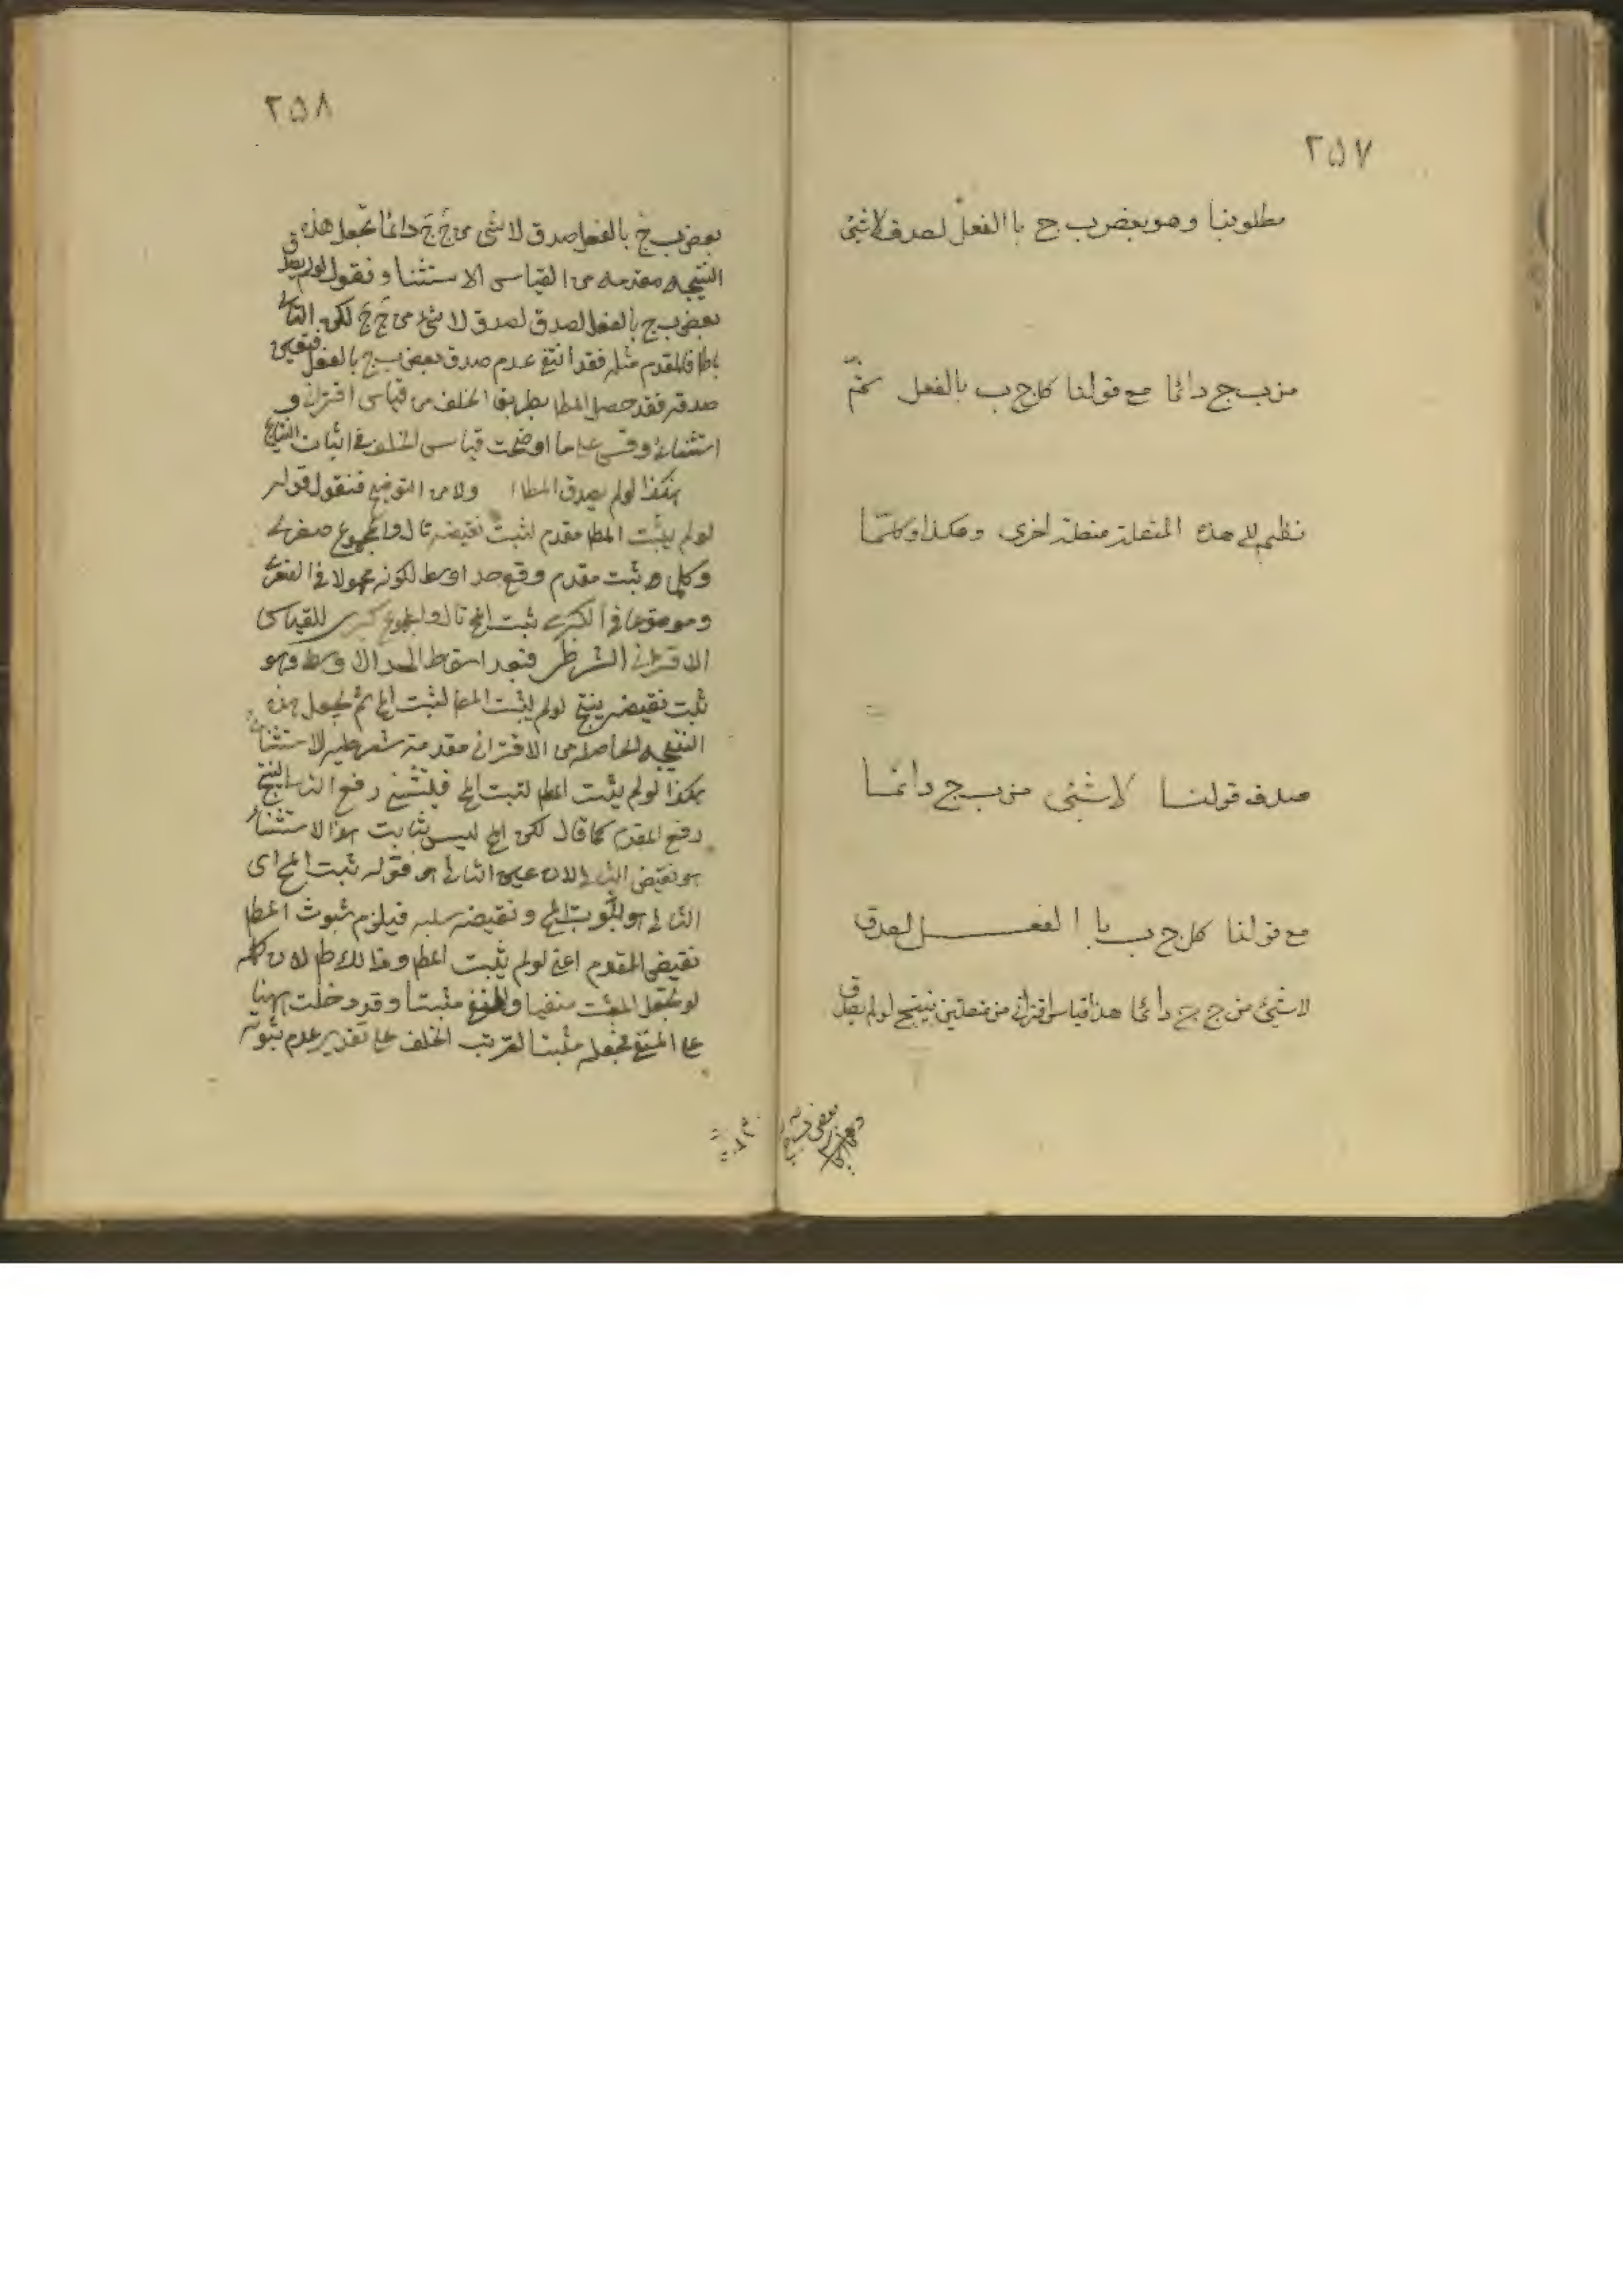 ٢٥٧
مطلوبنا وهو بعض ب ج باالفعل لصدق لاشئ
من ب ج دائما مع قولنا كل ج ب بالفعل ثمّ
نظم لى هذه المتصلة متصلة اخرى وهكذا وكلّما
صدق قولنا لاشئ من ب ج دائما
مع قولنا كل ج ب باالفعل لصدق
لاشئ من ج ج دائما هذا قياس اقترانى من متصلتين ينتج لولم يصدق
٢٥٨
بعض ب ج بالفعل صدق لا شئ من ج ج دائما نجعل هذه
النتيجه مقدمه من القياس الاستثنا ونقول لولم يصدق
بعض ب ج بالفعل لصدق لصدق لا شئ من ج ج لكن التالى
باطل فالمقدم مثله فقد انتفى عدم صدق بعض ب ج بالفعل فتعين
صدقه فقد حصل المطا بطريق الخلف من قياس اقترانى و
استثنائى وقس على ما اوضحت قياس الخلف فى اثبات النتايج
هكذا لولم يصدق المطا ولا من التوضيح فنقول قوله
لولم يثبت المطا مقدم لثبت نقيضه تال والمجموع صغرى
وكلما ثبت مقدم وقع حد اوسط لكونه محمولا فى الصغرى
وموضوعا فى الكبرى ثبت المح تال والمجموع كبرى للقياس
الاقترانى الشرطى فبعد اسقاط الحد الاوسط وهو
ثبت نقيضه ينتج لولم يثبت المطا لثبت المح ثم نجعل هذه
النتيجه الحاصله من الاقترانى مقدمة شرطيه لاستثنائى
هكذا لولم يثبت المطا لثبت المح فيستثنى رفع التالى لينتج
رفع المقدم كما قال لكن المح ليس بثابت هذا الاستثناء
هو نقيض التالى لان عين التالى هو قوله ثبت المح اى
التالى هو ثبوت المح ونقيضه سلبه فيلزم ثبوت المطا
نقيض المقدم اعنى لولم يثبت المطا وذلك لان كلمه
لو تجعل المثبت منفيا والمنفى مثبتا وقد دخلت ههنا
على المنفى فجعله مثبتا لترتب الخلف على تقدير عدم ثبوته